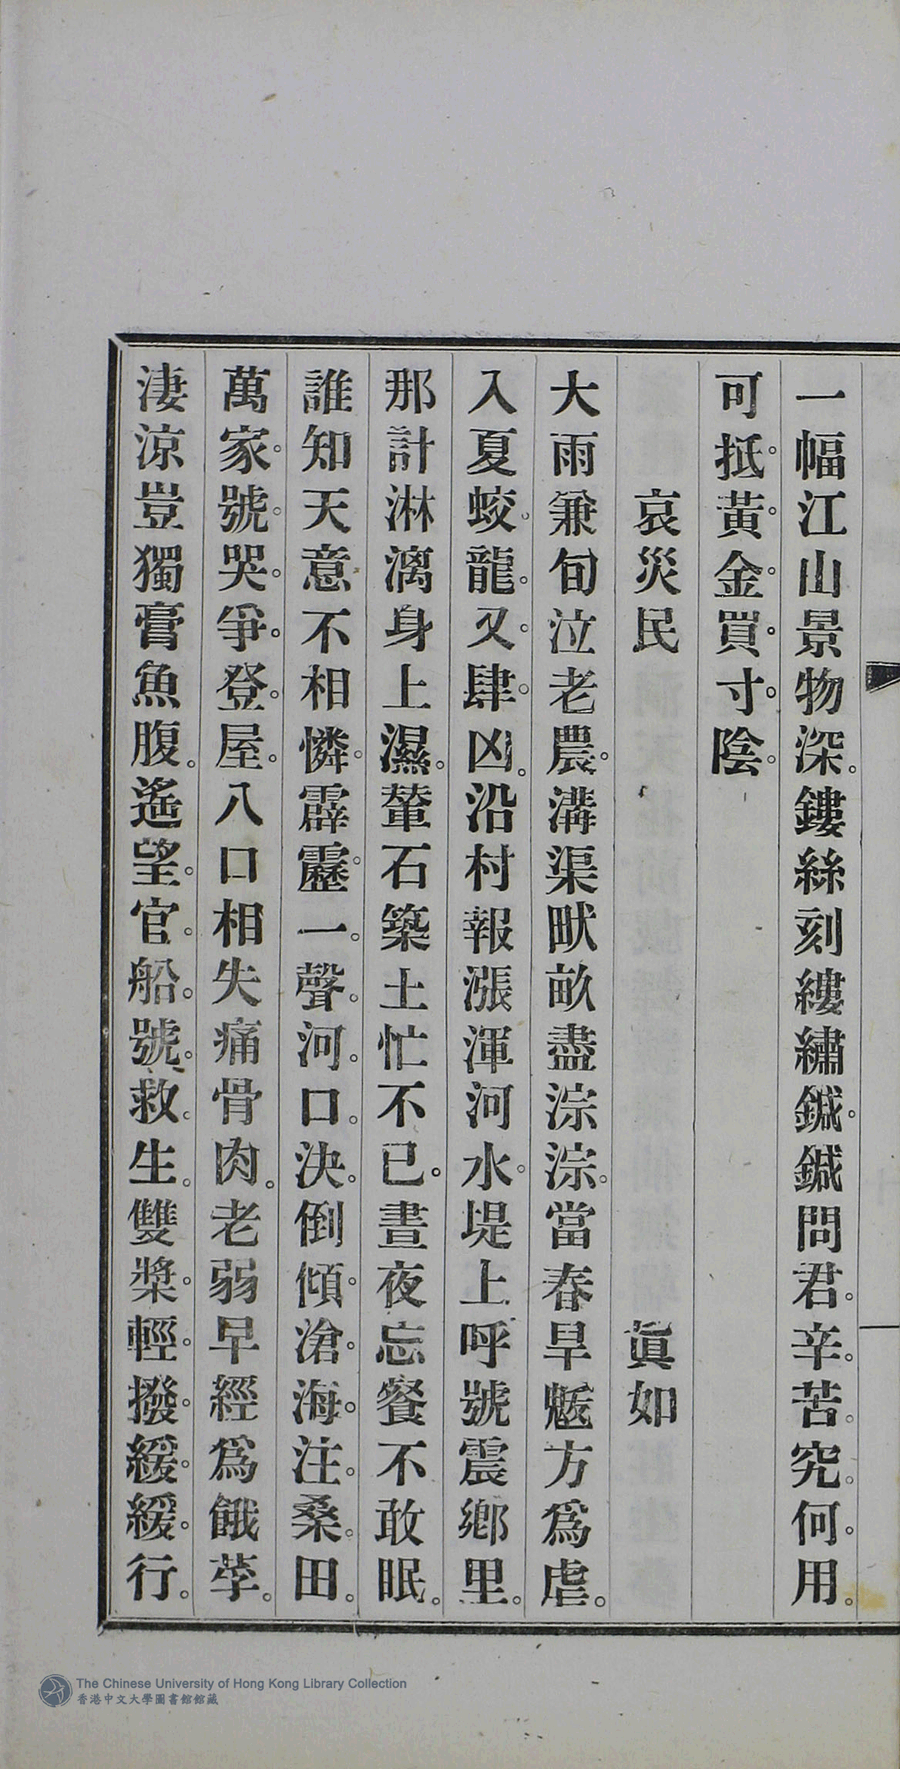 一幅江山景物深。鏤絲刻縷繡鍼鍼問君。辛。苦。究。何。用。
可抵。黃。金。買。寸。陰。
哀災民　眞如
大雨兼旬泣老農。溝渠畎畝盡淙淙。當春旱魃方爲虐。
入夏蛟。龍。又。肆。凶。沿村報漲渾河水。堤上呼號震鄉里。
那計淋漓身上濕。輦石築土忙不已。晝夜忘餐不敢眠。
誰知天意不相憐。霹靂。一。聲。河。口。決。倒傾。滄。海。注。桑。田。
萬家。號。哭。爭。登。屋。八口相失痛骨肉。老弱早經爲餓莩。
淒涼豈獨膏魚腹。遙望。官。船。號。救。生。雙槳。輕。撥。緩。緩。行。
The Chinese University of Hong Kong Library Collection
香港中文大學圖書館館藏